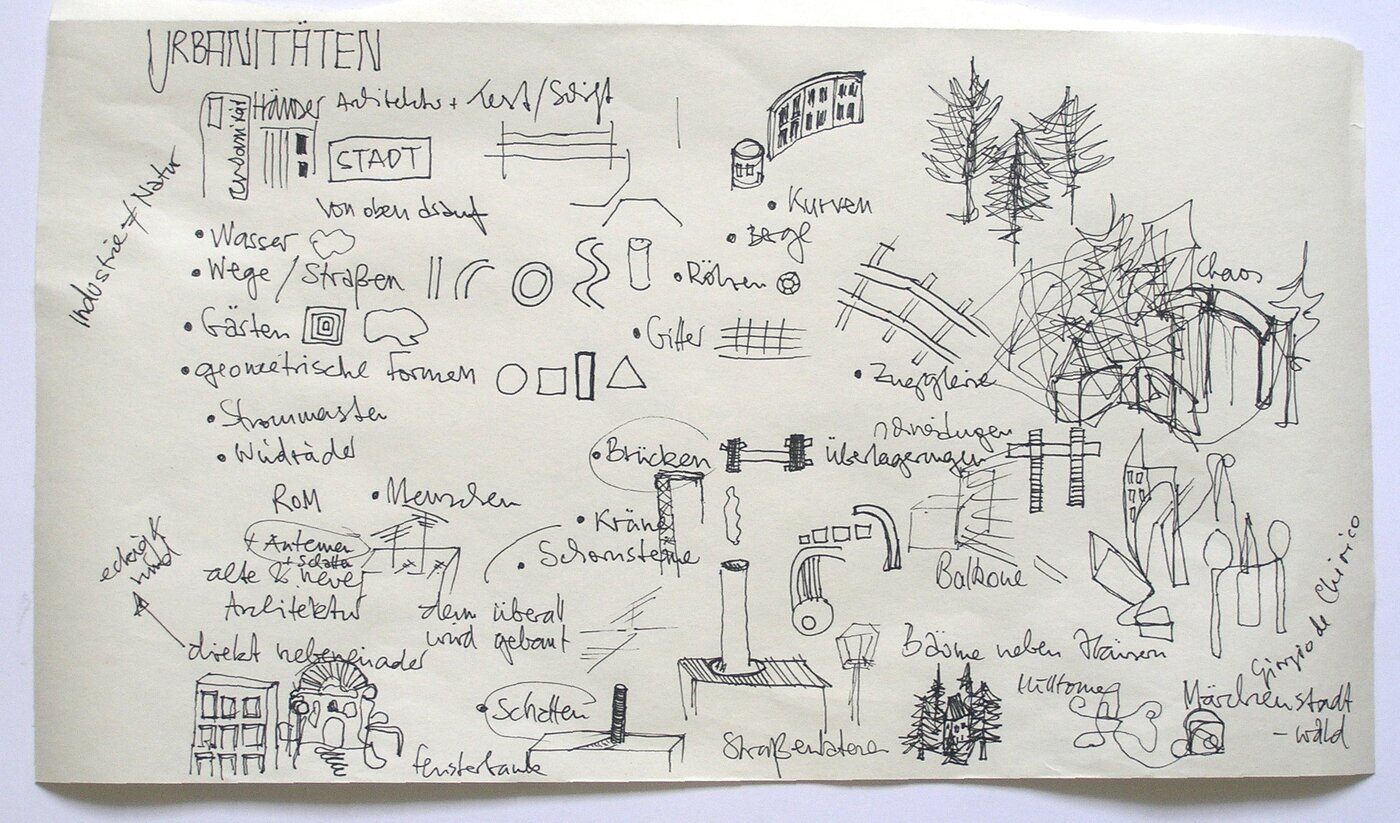 URBANITÄTEN
Häuser Architektur + Text/Schrift
Urbanität
STADT
von oben drauf
Industrie ≠ Natur
• Wasser
• Wege / Straßen
• Gärten
• geometrische Formen
• Strommasten
• Windräder
• Kurven
• Berge
• Röhren
• Gitter
• Zuggleise
Chaos
• Brücken
überlagerungen
ROM
• Menschen
+ Antennen
+ Schatten
alte & neue
Architektur
direkt nebeneinader
eckig &
rund
• Kräne
• Schornsteine
denn überall
wird gebaut
Balkone
• Schatten
Fensterbank
Straßenlaterne
Bäume neben Häusern
Mülltonne
Märchenstadt
-wald
Giorgio de Chirico